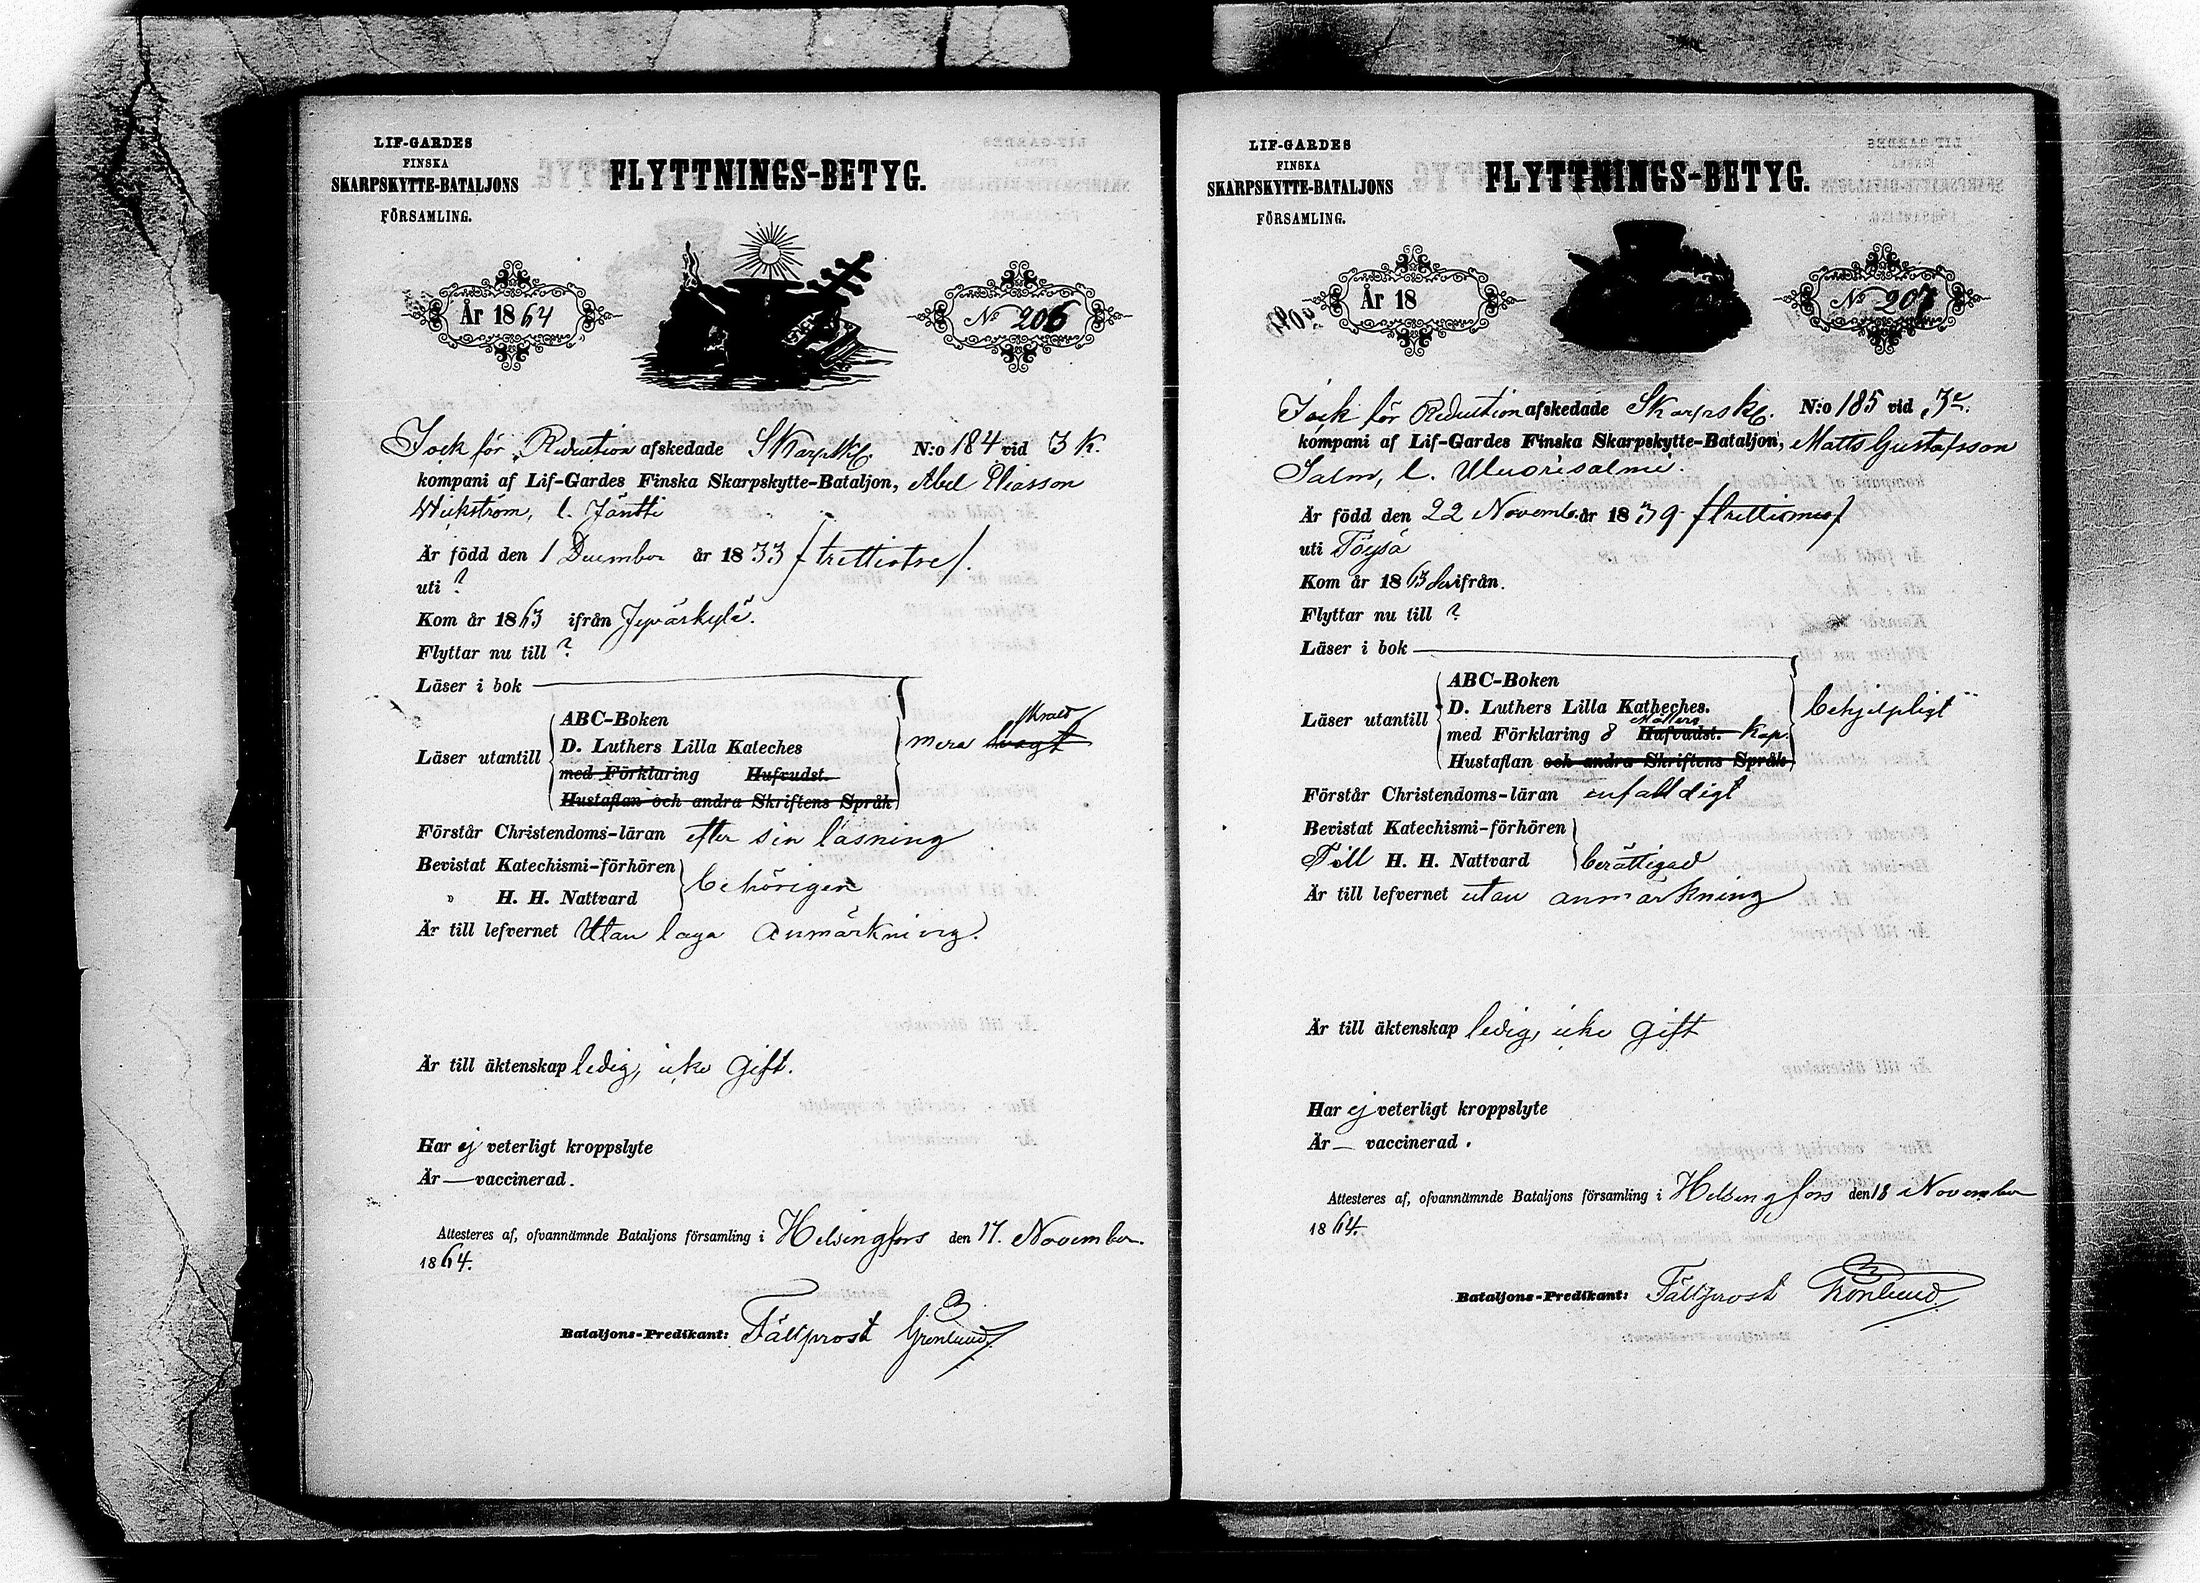 LIF-GARDES
FINSKA
SKARPSKYTTE-BATALJONS
FÖRSAMLING.
FLYTTNINGS-BETYG.
År 1864
No 206
för Reduction afskedade N:o 184 vid 3 K.
kompani af Lif-Gardes Finska Skarpskytte-Bataljon, Abel Eliasson
Wickström, l. Jäntti
Är född den 1 December år 1833 / trettiotre /.
uti ?
Kom år 1863 ifrån Jyväskylä.
Flyttar nu till ?
Läser i bok
Läser utantill
ABC-Boken
D. Luthers Lilla Kateches
med Förklaring Hufvudst.
Hustaflan och andra Skriftens Språk
mera svagt
Förstår Christendoms-läran efter sin läsning
Bevistat Katechismi-förhören
" H. H. Nattvard
behörigen
Är till lefvernet Utan laga anmärkning.
Är till äktenskap ledig, icke gift.
Har ej veterligt kroppslyte
Är — vaccinerad.
Attesteres af, ofvannämnde Bataljons församling i Helsingfors den 17. November.
1864.
Bataljons-Predikant: Fältprost Grönlund
LIF-GARDES
FINSKA
SKARPSKYTTE-BATALJONS
FÖRSAMLING.
FLYTTNINGS-BETYG.
År 18
No 207
för Reduction afskedade N:o 185 vid 3e.
kompani af Lif-Gardes Finska Skarpskytte-Bataljon, Matts Gustafsson
Salm, l.
Är född den 22 Novemb. år 1839 / trettionio /
uti Töysä
Kom år 1863 ifrån.
Flyttar nu till ?
Läser i bok
Läser utantill
ABC-Boken
D. Luthers Lilla Katheches.
med Förklaring 8 Möllers Hufvudst. Kap.
Hustaflan och andra Skriftens Språk
behjelpligt
Förstår Christendoms-läran enfalldigt
Bevistat Katechismi-förhören
Till H. H. Nattvard
berättigad
Är till lefvernet utan anmärkning
Är till äktenskap ledig, icke gift
Har ej veterligt kroppslyte
Är — vaccinerad.
Attesteres af, ofvannämnde Bataljons församling i Helsingfors den 18 November
1864.
Bataljons-Predikant: Fältprost Grönlund